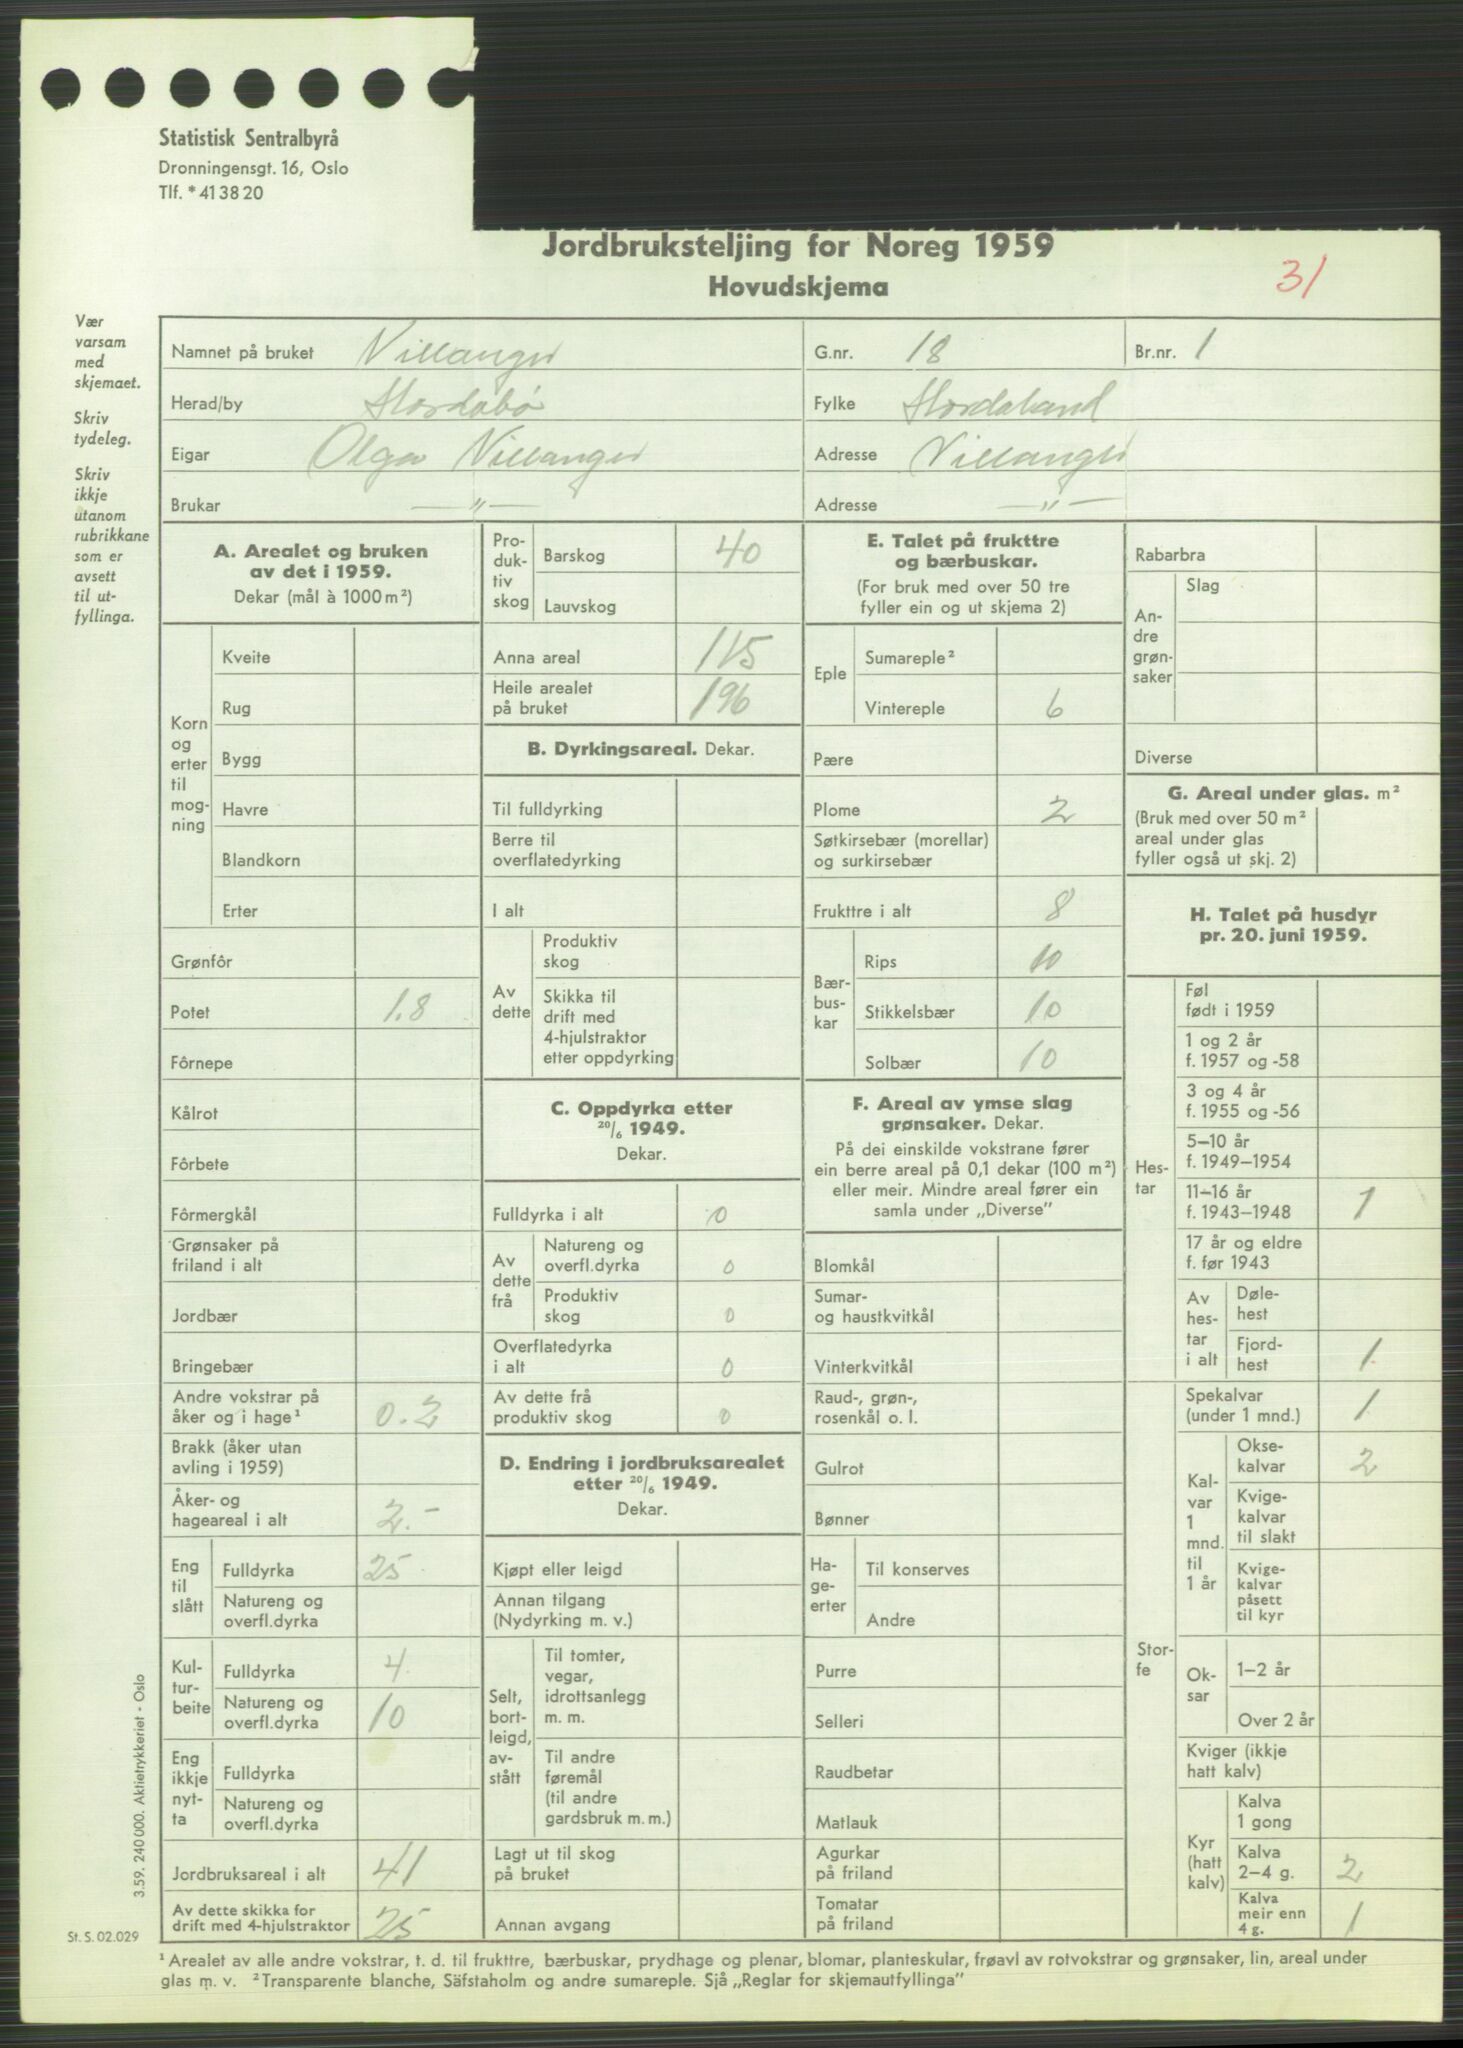 Statistisk Sentralbyrå
Dronningensgt. 16, Oslo
Tlf. * 41 38 20
Jordbruksteljing for Noreg 1959
Hovudskjema
31
Vær
varsam
med
skjemaet.
Skriv
tydeleg.
Skriv
ikkje
utanom
rubrikkane
som er
avsett
til ut-
fyllinga.
Namnet på bruket Villanger G.nr. 18 Br.nr. 1
Herad/by Hordabø Fylke Hordaland
Eigar Olga Villanger Adresse Villanger
Brukar — " — Adresse — " —
A. Arealet og bruken
av det i 1959.
Dekar (mål à 1000 m²)
Korn
og
erter
til
mog-
ning
Kveite
Rug
Bygg
Havre
Blandkorn
Erter
Grønfôr
Potet 1.8
Fôrnepe
Kålrot
Fôrbete
Fôrmergkål
Grønsaker på
friland i alt
Jordbær
Bringebær
Andre vokstrar på
åker og i hage¹ 0.2
Brakk (åker utan
avling i 1959)
Åker- og
hageareal i alt 2.-
Eng
til
slått
Fulldyrka 25
Natureng og
overfl.dyrka
Kul-
tur-
beite
Fulldyrka 4
Natureng og
overfl.dyrka 10
Eng
ikkje
nyt-
ta
Fulldyrka
Natureng og
overfl.dyrka
Jordbruksareal i alt 41
Av dette skikka for
drift med 4-hjulstraktor 25
Pro-
duk-
tiv
skog
Barskog 40
Lauvskog
Anna areal 115
Heile arealet
på bruket 196
B. Dyrkingsareal. Dekar.
Til fulldyrking
Berre til
overflatedyrking
I alt
Av
dette
Produktiv
skog
Skikka til
drift med
4-hjulstraktor
etter oppdyrking
C. Oppdyrka etter
20/6 1949.
Dekar.
Fulldyrka i alt 0
Av
dette
frå
Natureng og
overfl.dyrka 0
Produktiv
skog 0
Overflatedyrka
i alt 0
Av dette frå
produktiv skog 0
D. Endring i jordbruksarealet
etter 20/6 1949.
Dekar.
Kjøpt eller leigd
Annan tilgang
(Nydyrking m. v.)
Selt,
bort-
leigd,
av-
stått
Til tomter,
vegar,
idrottsanlegg
m. m.
Til andre
føremål
(til andre
gardsbruk m. m.)
Lagt ut til skog
på bruket
Annan avgang
E. Talet på frukttre
og bærbuskar.
(For bruk med over 50 tre
fyller ein og ut skjema 2)
Eple
Sumareple²
Vintereple 6
Pære
Plome 2
Søtkirsebær (morellar)
og surkirsebær
Frukttre i alt 8
Bær-
bus-
kar
Rips 10
Stikkelsbær 10
Solbær 10
F. Areal av ymse slag
grønsaker. Dekar.
På dei einskilde vokstrane fører
ein berre areal på 0,1 dekar (100 m²)
eller meir. Mindre areal fører ein
samla under „Diverse”
Blomkål
Sumar-
og haustkvitkål
Vinterkvitkål
Raud-, grøn-,
rosenkål o. l.
Gulrot
Bønner
Ha-
ge-
erter
Til konserves
Andre
Purre
Selleri
Raudbetar
Matlauk
Agurkar
på friland
Tomatar
på friland
Rabarbra
An-
dre
grøn-
saker
Slag
Diverse
G. Areal under glas. m²
(Bruk med over 50 m²
areal under glas
fyller også ut skj. 2)
H. Talet på husdyr
pr. 20. juni 1959.
Hes-
tar
Føl
født i 1959
1 og 2 år
f. 1957 og -58
3 og 4 år
f. 1955 og -56
5–10 år
f. 1949–1954
11–16 år
f. 1943–1948 1
17 år og eldre
f. før 1943
Av
hes-
tar
i alt
Døle-
hest
Fjord-
hest 1
Stor-
fe
Spekalvar
(under 1 mnd.) 1
Kal-
var
1
mnd.
til
1 år
Okse-
kalvar 2
Kvige-
kalvar
til slakt
Kvige-
kalvar
påsett
til kyr
Ok-
sar
1–2 år
Over 2 år
Kviger (ikkje
hatt kalv)
Kyr
(hatt
kalv)
Kalva
1 gong
Kalva
2–4 g. 2
Kalva
meir enn
4 g. 1
3.59. 240 000. Aktietrykkeriet - Oslo
St. S. 02.029
¹ Arealet av alle andre vokstrar, t. d. til frukttre, bærbuskar, prydhage og plenar, blomar, planteskular, frøavl av rotvokstrar og grønsaker, lin, areal under
glas m. v. ² Transparente blanche, Säfstaholm og andre sumareple. Sjå „Reglar for skjemautfyllinga”